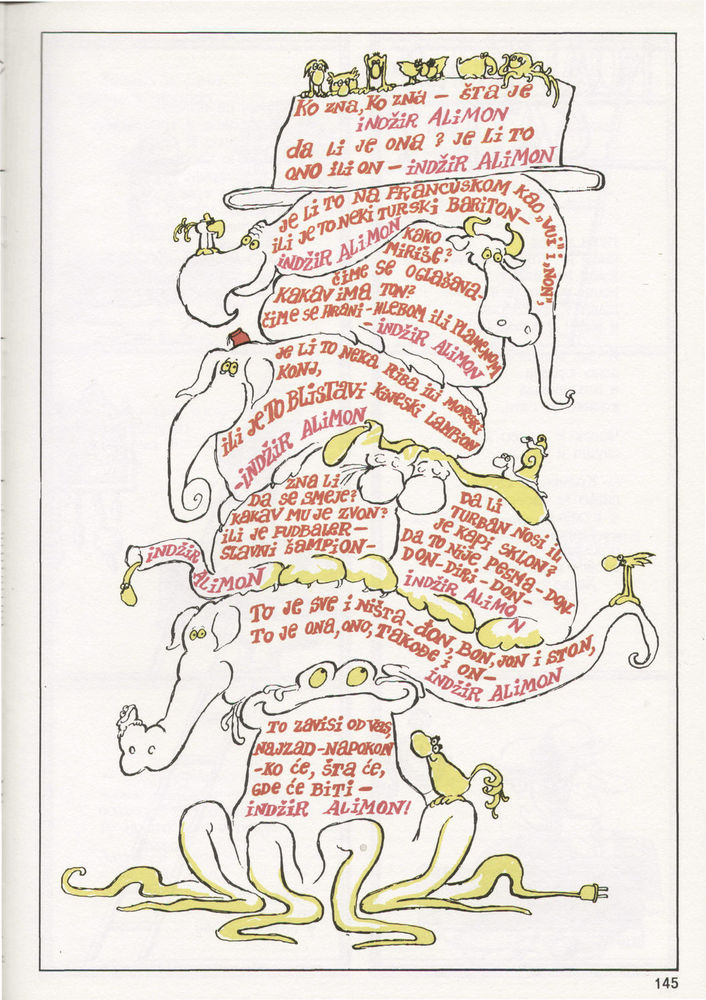 Ko zna, ko zna — šta je
indžir alimon
da li je ona ? je li to
ono ili on — indžir alimon
je li to na francuskom kao „vui“ i „non“,
ili je to neki turski bariton —
indžir alimon
kako
miriše?
čime se oglašava.
kakav ima ton?
čime se hrani - hlebom ili plamenom
- indžir alimon
je li to neka riba ili morski
konj,
ili je to blistavi kineski lampion
-indžir alimon
zna li
da se smeje?
kakav mu je zvon?
ili je fudbaler —
slavni šampion —
indžir
alimon
da li
turban nosi ili
je kapi sklon?
da to nije pesma - don.
don - diri - don -
indžir alimo
n
To je sve i ništa - đon, bon, jon i ston,
To je ona, ono, takođe i on —
indžir alimon
to zavisi od vas,
najzad - napokon
- ko će, šta će,
gde će biti —
indžir alimon!
145